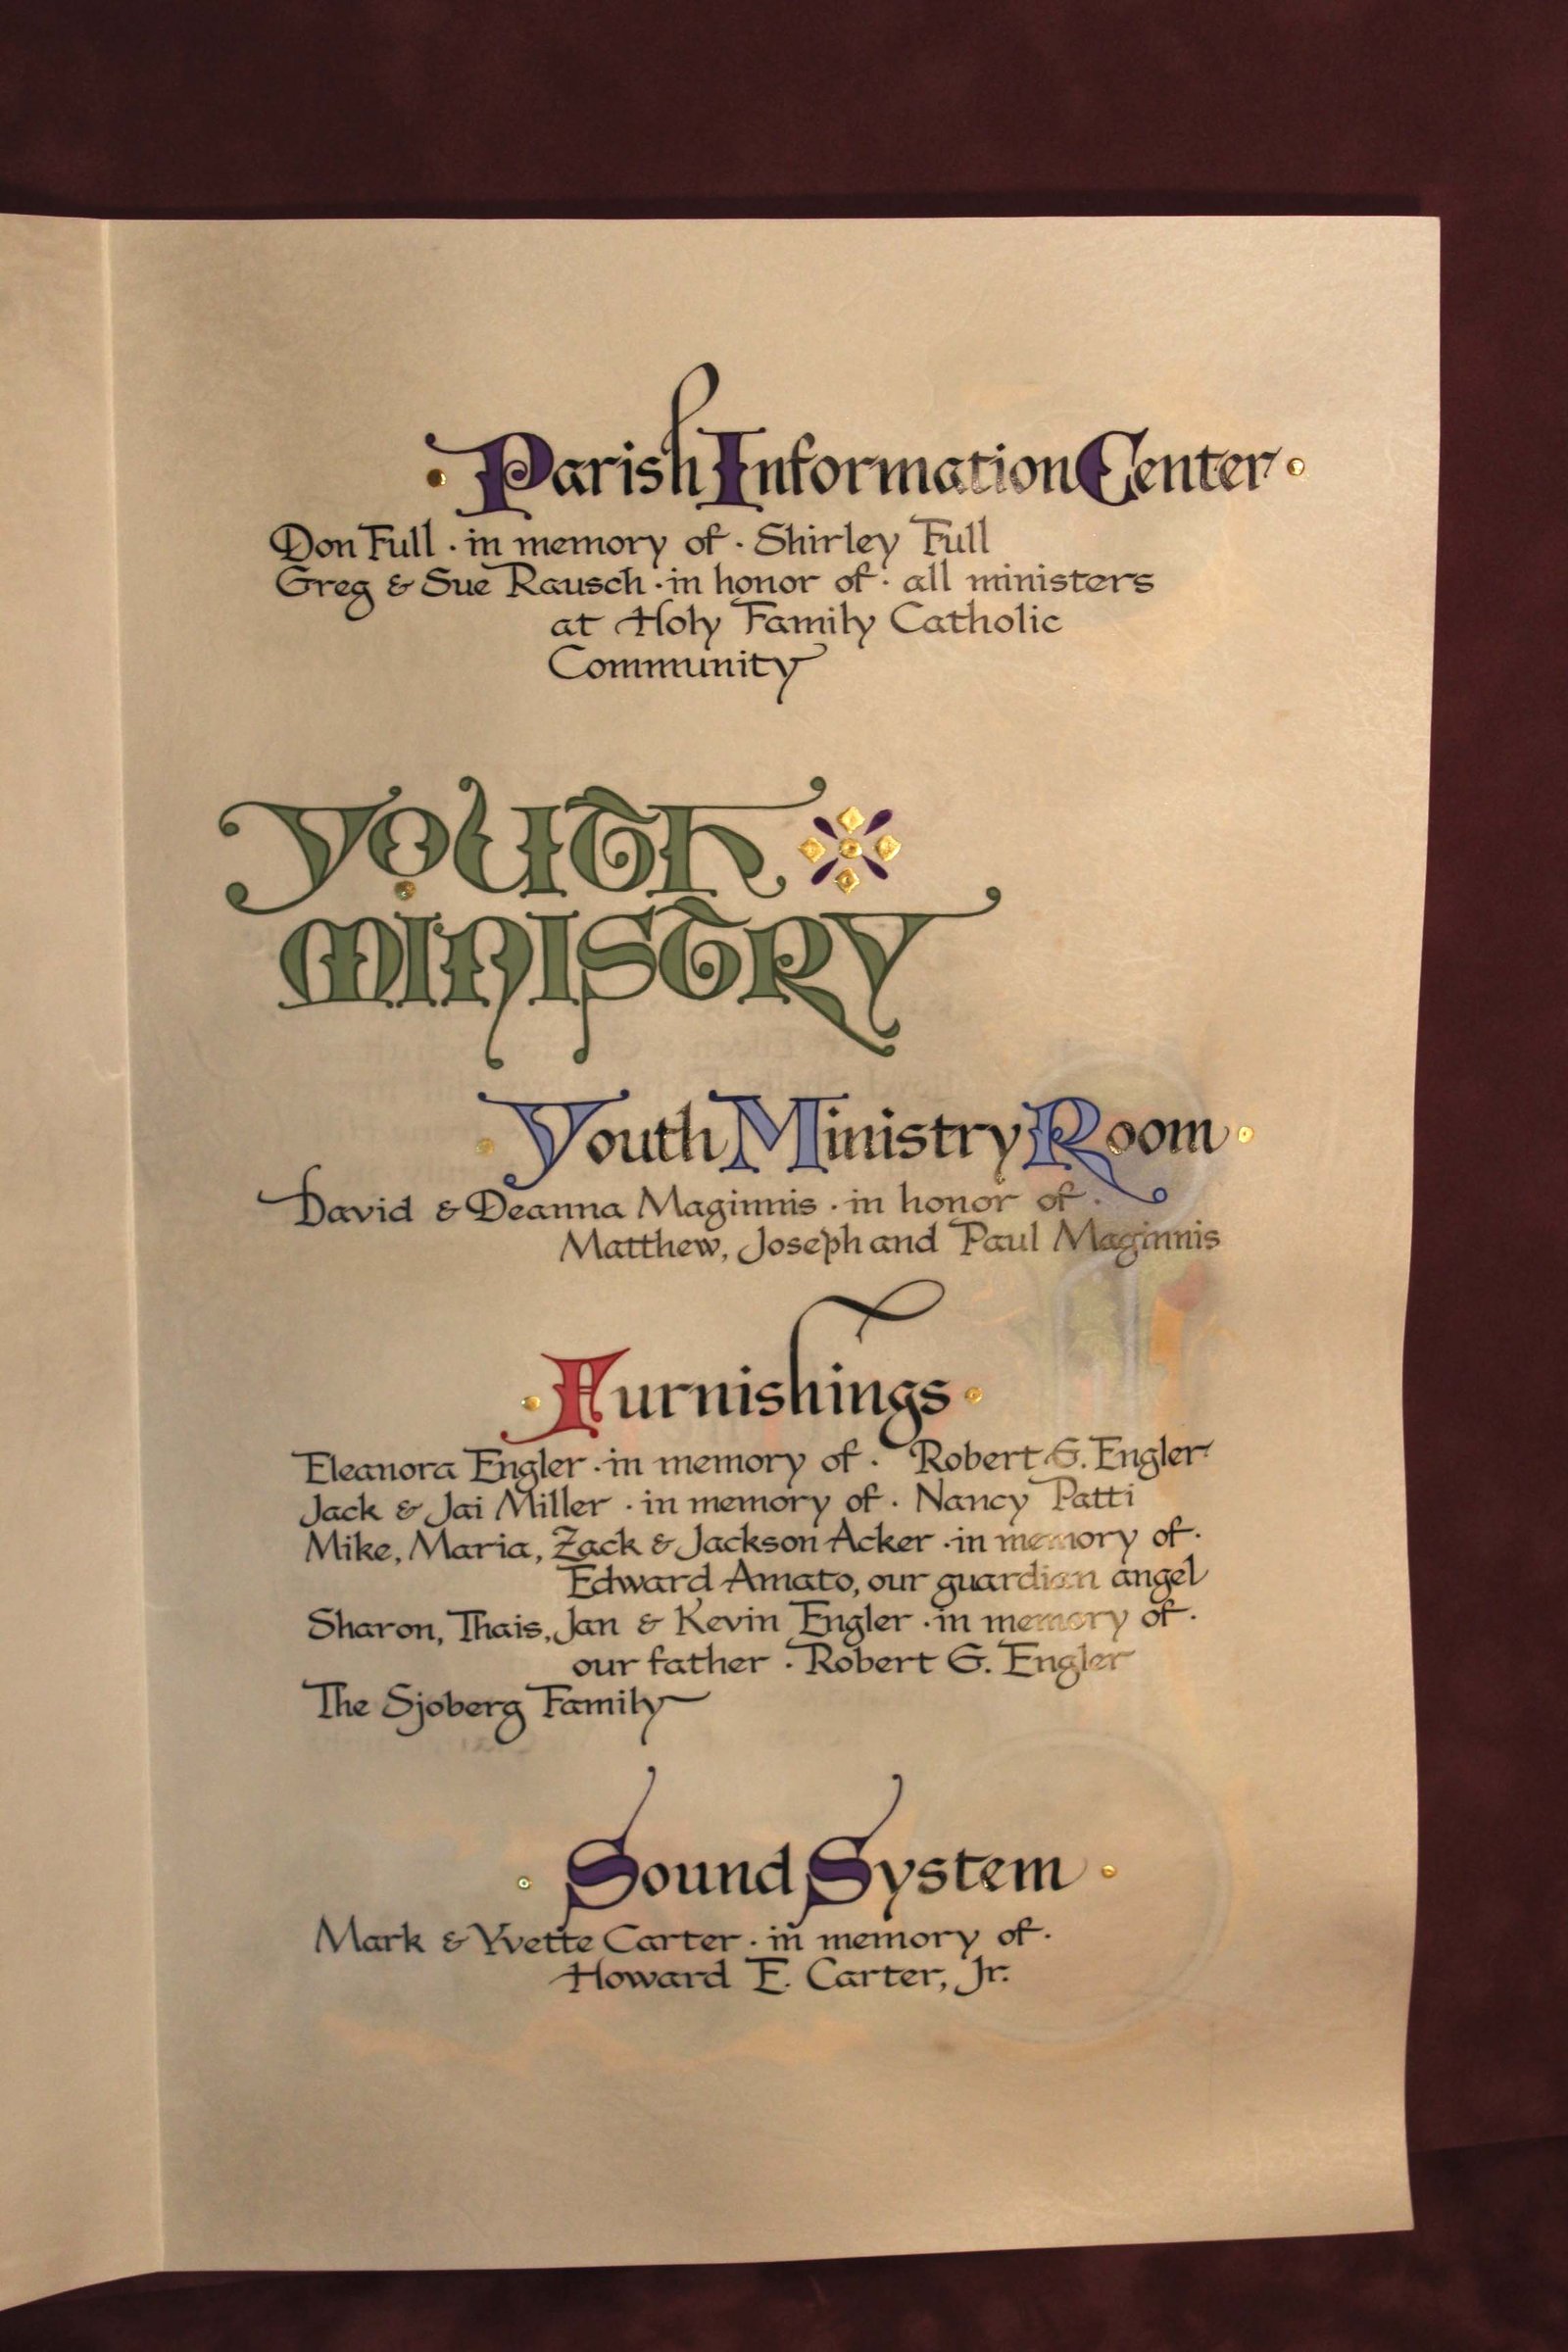 · Parish Information Center ·
Don Full · in memory of · Shirley Full
Greg & Sue Rausch · in honor of · all ministers
at Holy Family Catholic
Community
Youth
Ministry
· Youth Ministry Room ·
David & Deanna Maginnis · in honor of ·
Matthew, Joseph and Paul Maginnis
· Furnishings ·
Eleanora Engler · in memory of · Robert G. Engler
Jack & Jai Miller · in memory of · Nancy Patti
Mike, Maria, Zack & Jackson Acker · in memory of ·
Edward Amato, our guardian angel
Sharon, Thais, Jan & Kevin Engler · in memory of ·
our father · Robert G. Engler
The Sjoberg Family
· Sound System ·
Mark & Yvette Carter · in memory of ·
Howard E. Carter, Jr.